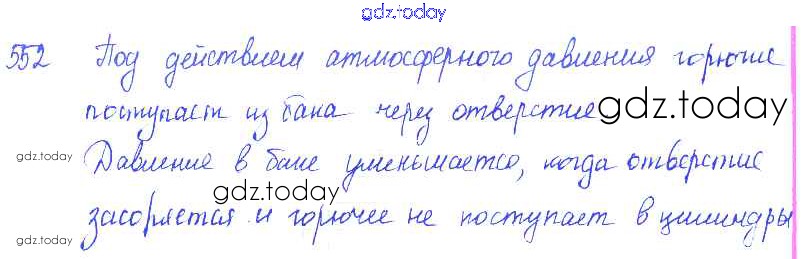 gdz.today
552 Под действием атмосферного давления горючие
поступает из бака через отверстие gdz.today
gdz.today Давление в баке уменьшается, когда отверстие
gdz.today
засоряется и горючее не поступает в цилиндры
gdz.today